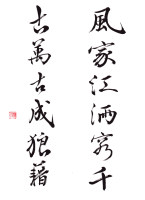 風家江洒客千
古萬古成狼藉